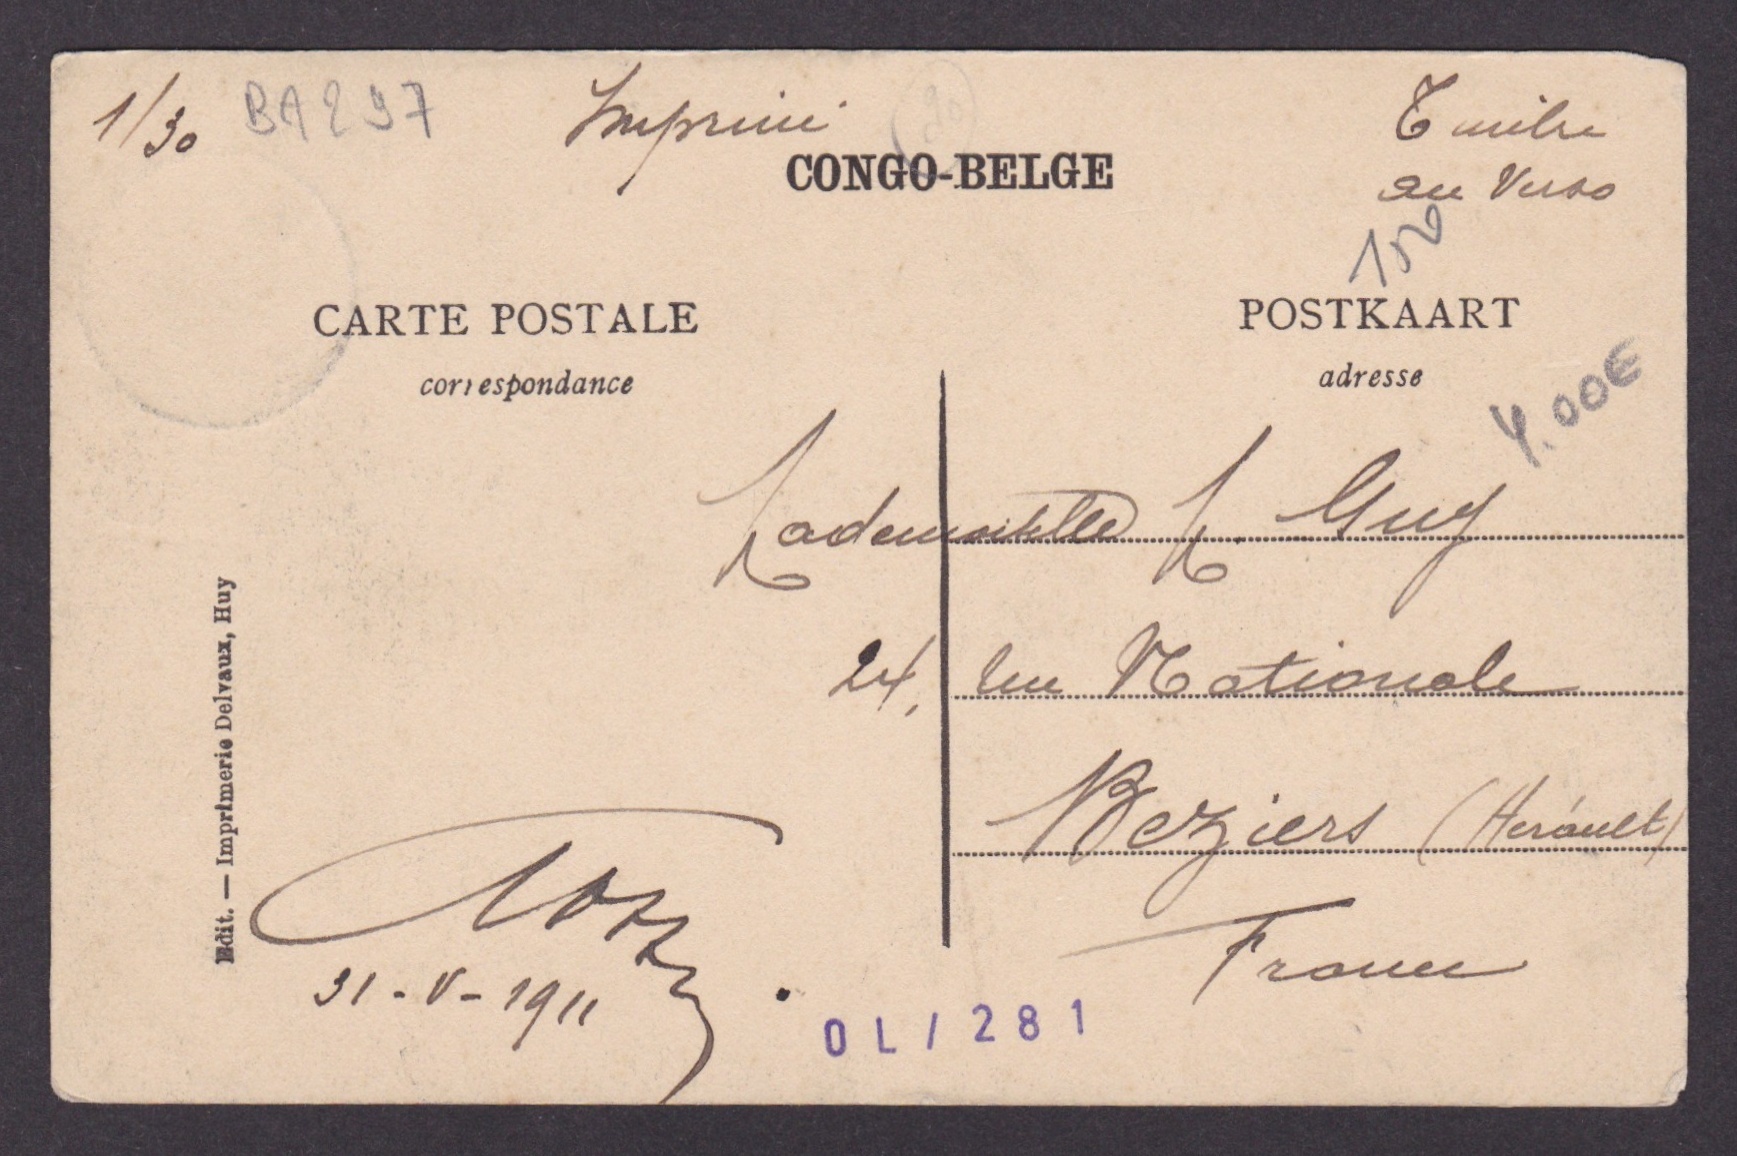 1/30 BA297 Imprimé
Timbre
au Verso
CONGO-BELGE
150
CARTE POSTALE POSTKAART
correspondance adresse
4.00€
Mademoiselle M. Guy
24, Rue Nationale
Beziers (Hérault)
France
Edit. — Imprimerie Delvaux, Huy
31-V-1911
OL/281